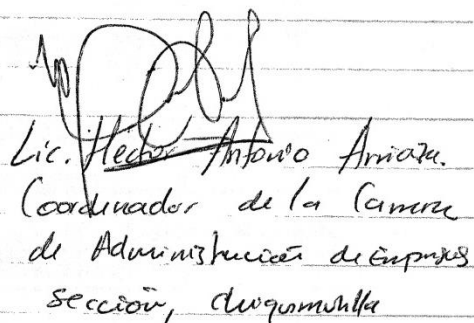 Lic. Héctor Antonio Arriaza.
Coordinador de la Carrera
de Administración de Empresas
sección, chiquimulilla